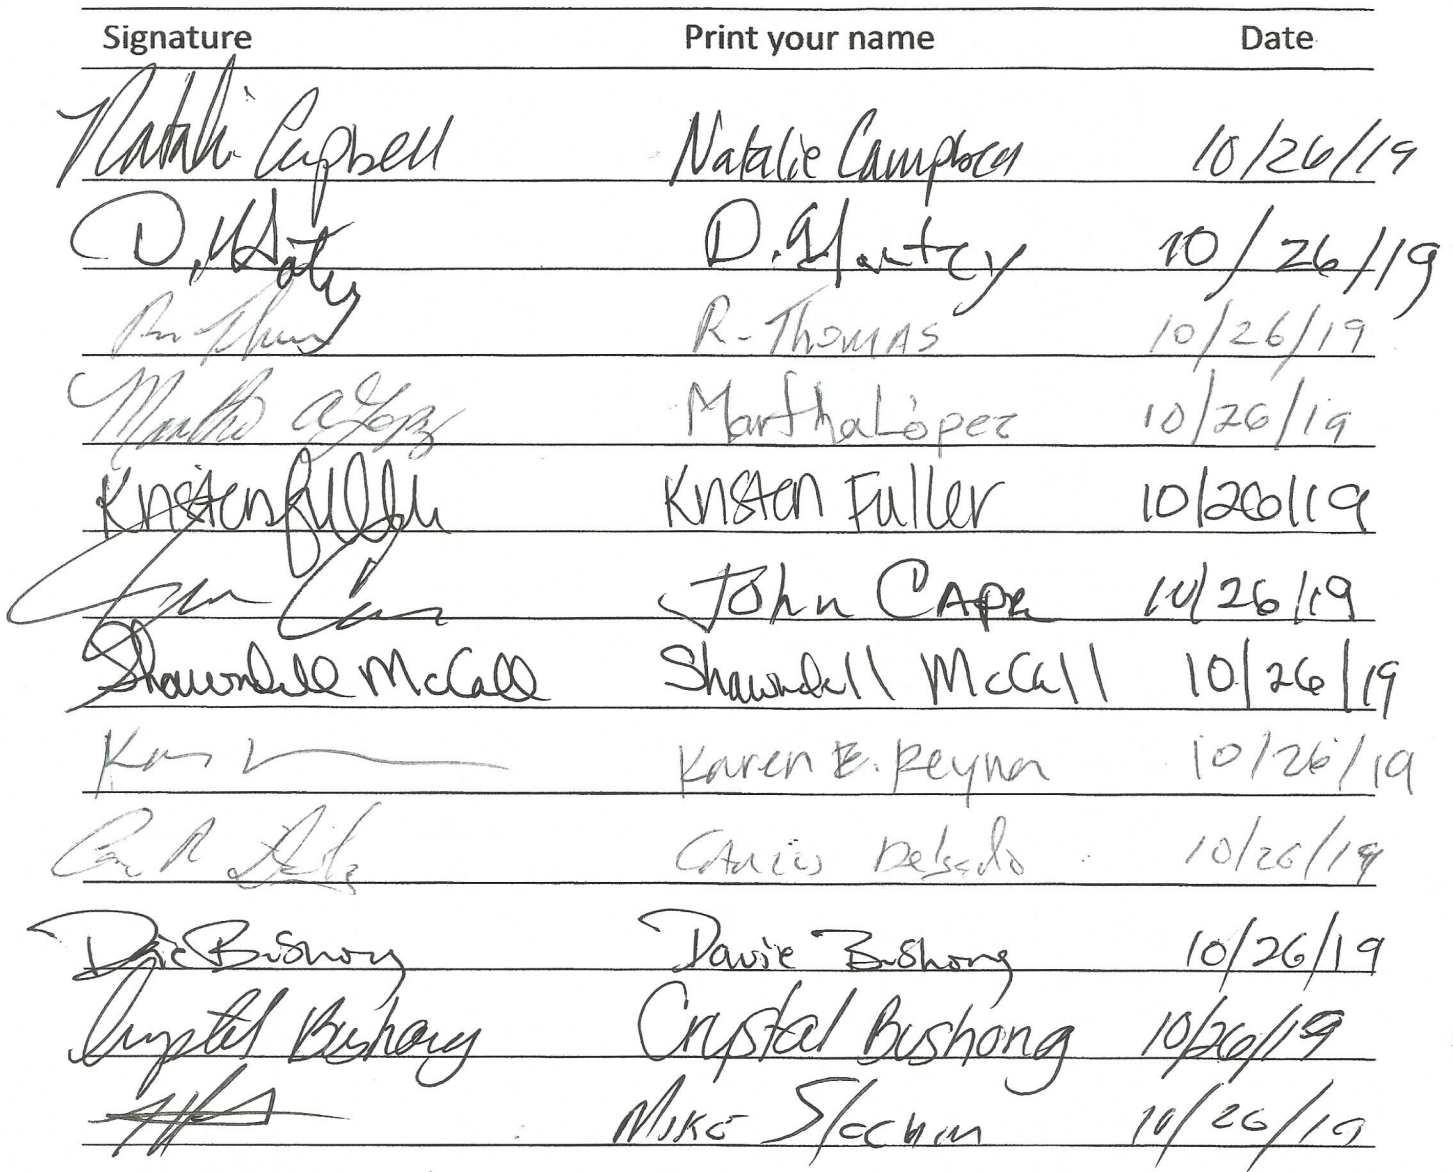 Signature Print your name Date
Natalie Campbell Natalie Campbell 10/26/19
D. D. Hantey 10/26/19
R. Thomas 10/26/19
Martha A Lopez Martha López 10/26/19
Kristen Fuller Kristen Fuller 10/26/19
John Cape 10/26/19
Shawndell McCall Shawndell McCall 10/26/19
Karen E. Reyna 10/26/19
Carlos Delgado 10/26/19
Davie Bushong Davie Bushong 10/26/19
Crystal Bushong Crystal Bushong 10/26/19
Mike 10/26/19